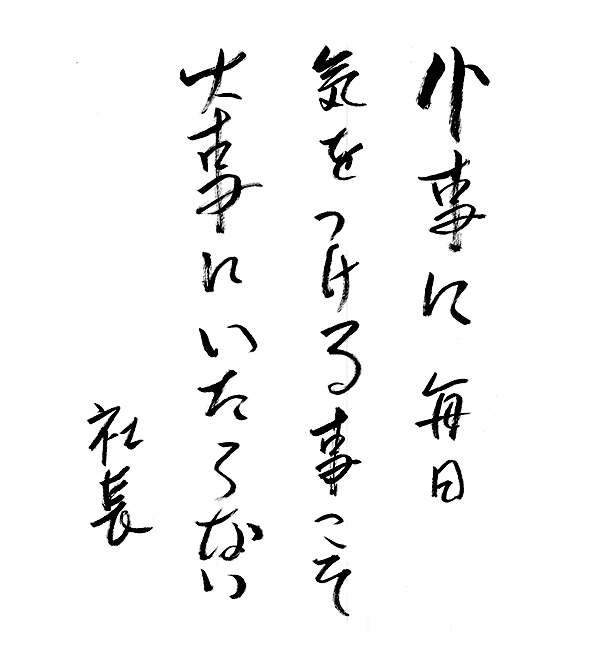 小事に毎日
気をつける事こそ
大事にいたらない
社長